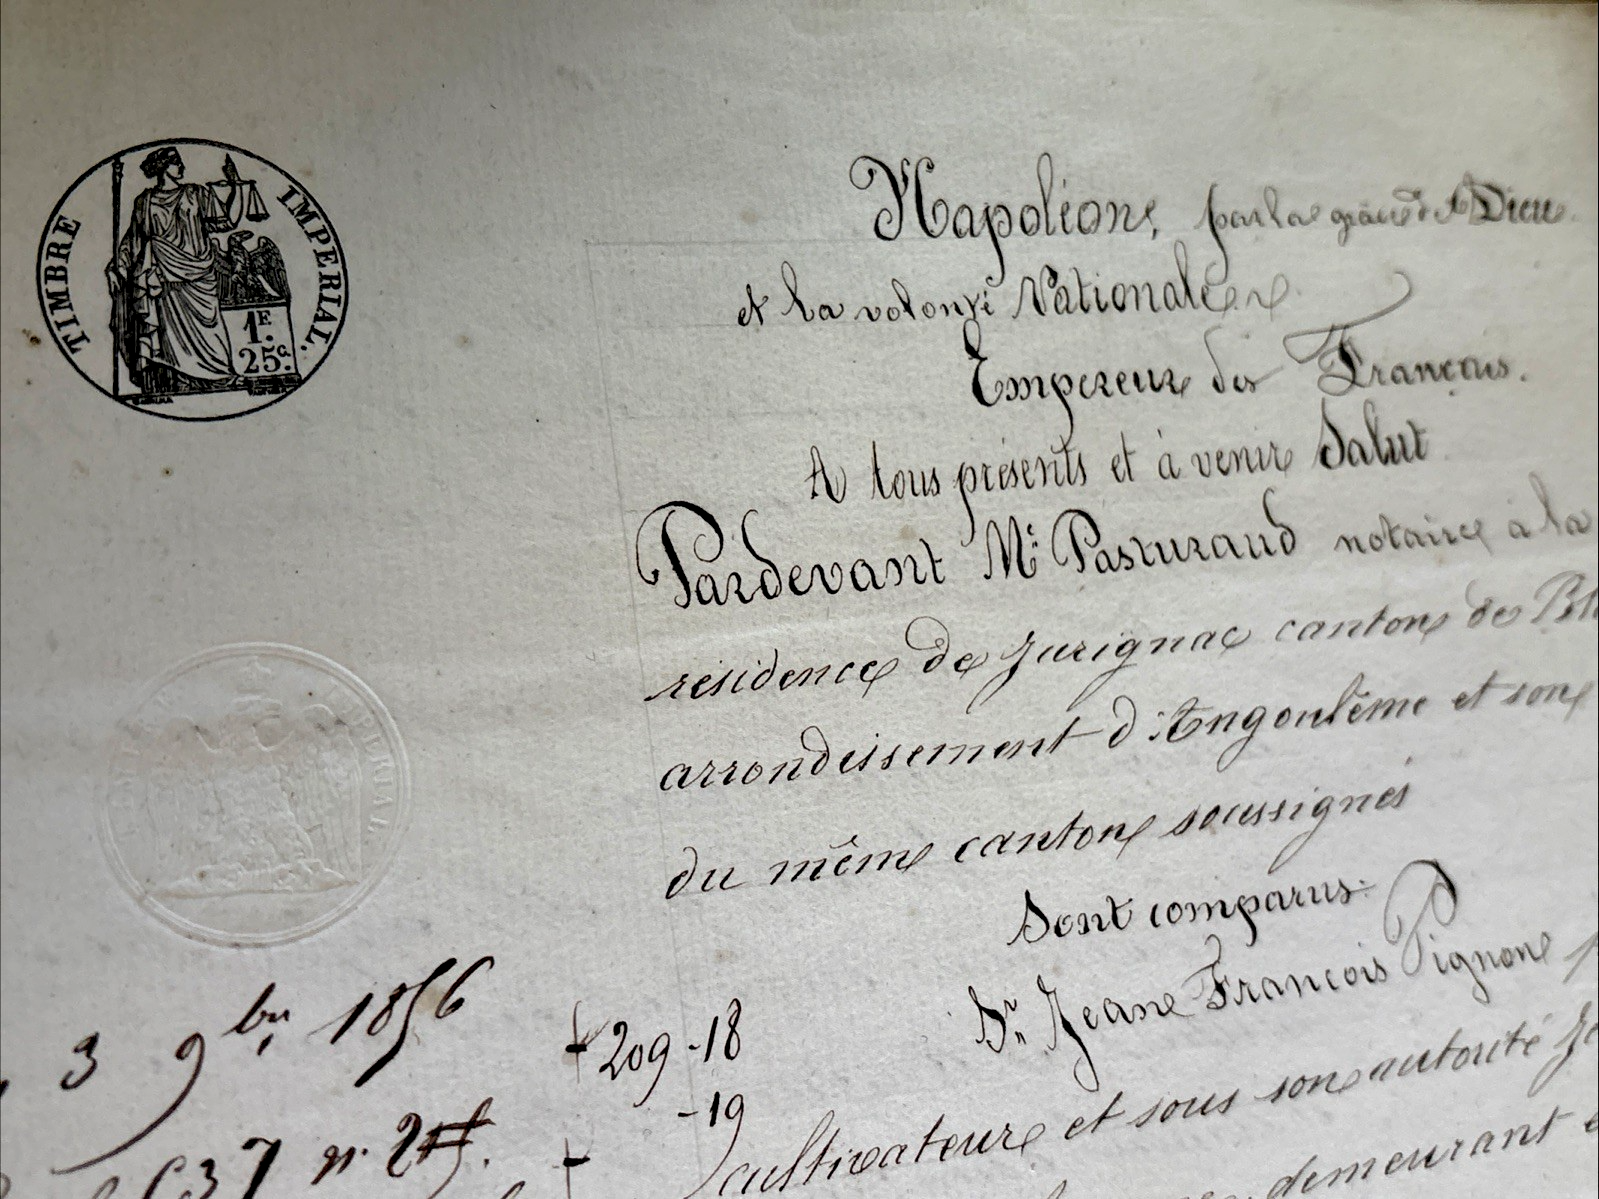 TIMBRE IMPERIAL.
1F.
25c.
Napoléon, par la grâce de Dieu
et la volonté Nationale
Empereur des Français.
A tous présents et à venir Salut
Pardevant Me Pasturaud notaire à la
résidence de Jurignac canton de Bl
arrondissement d'Angoulême et son
du même canton soussignés
Sont comparus.
Sr. Jean François Pignon
3 9bre 1856
209-18
-19
cultivateur et sous son autorité
37 n.
demeurant